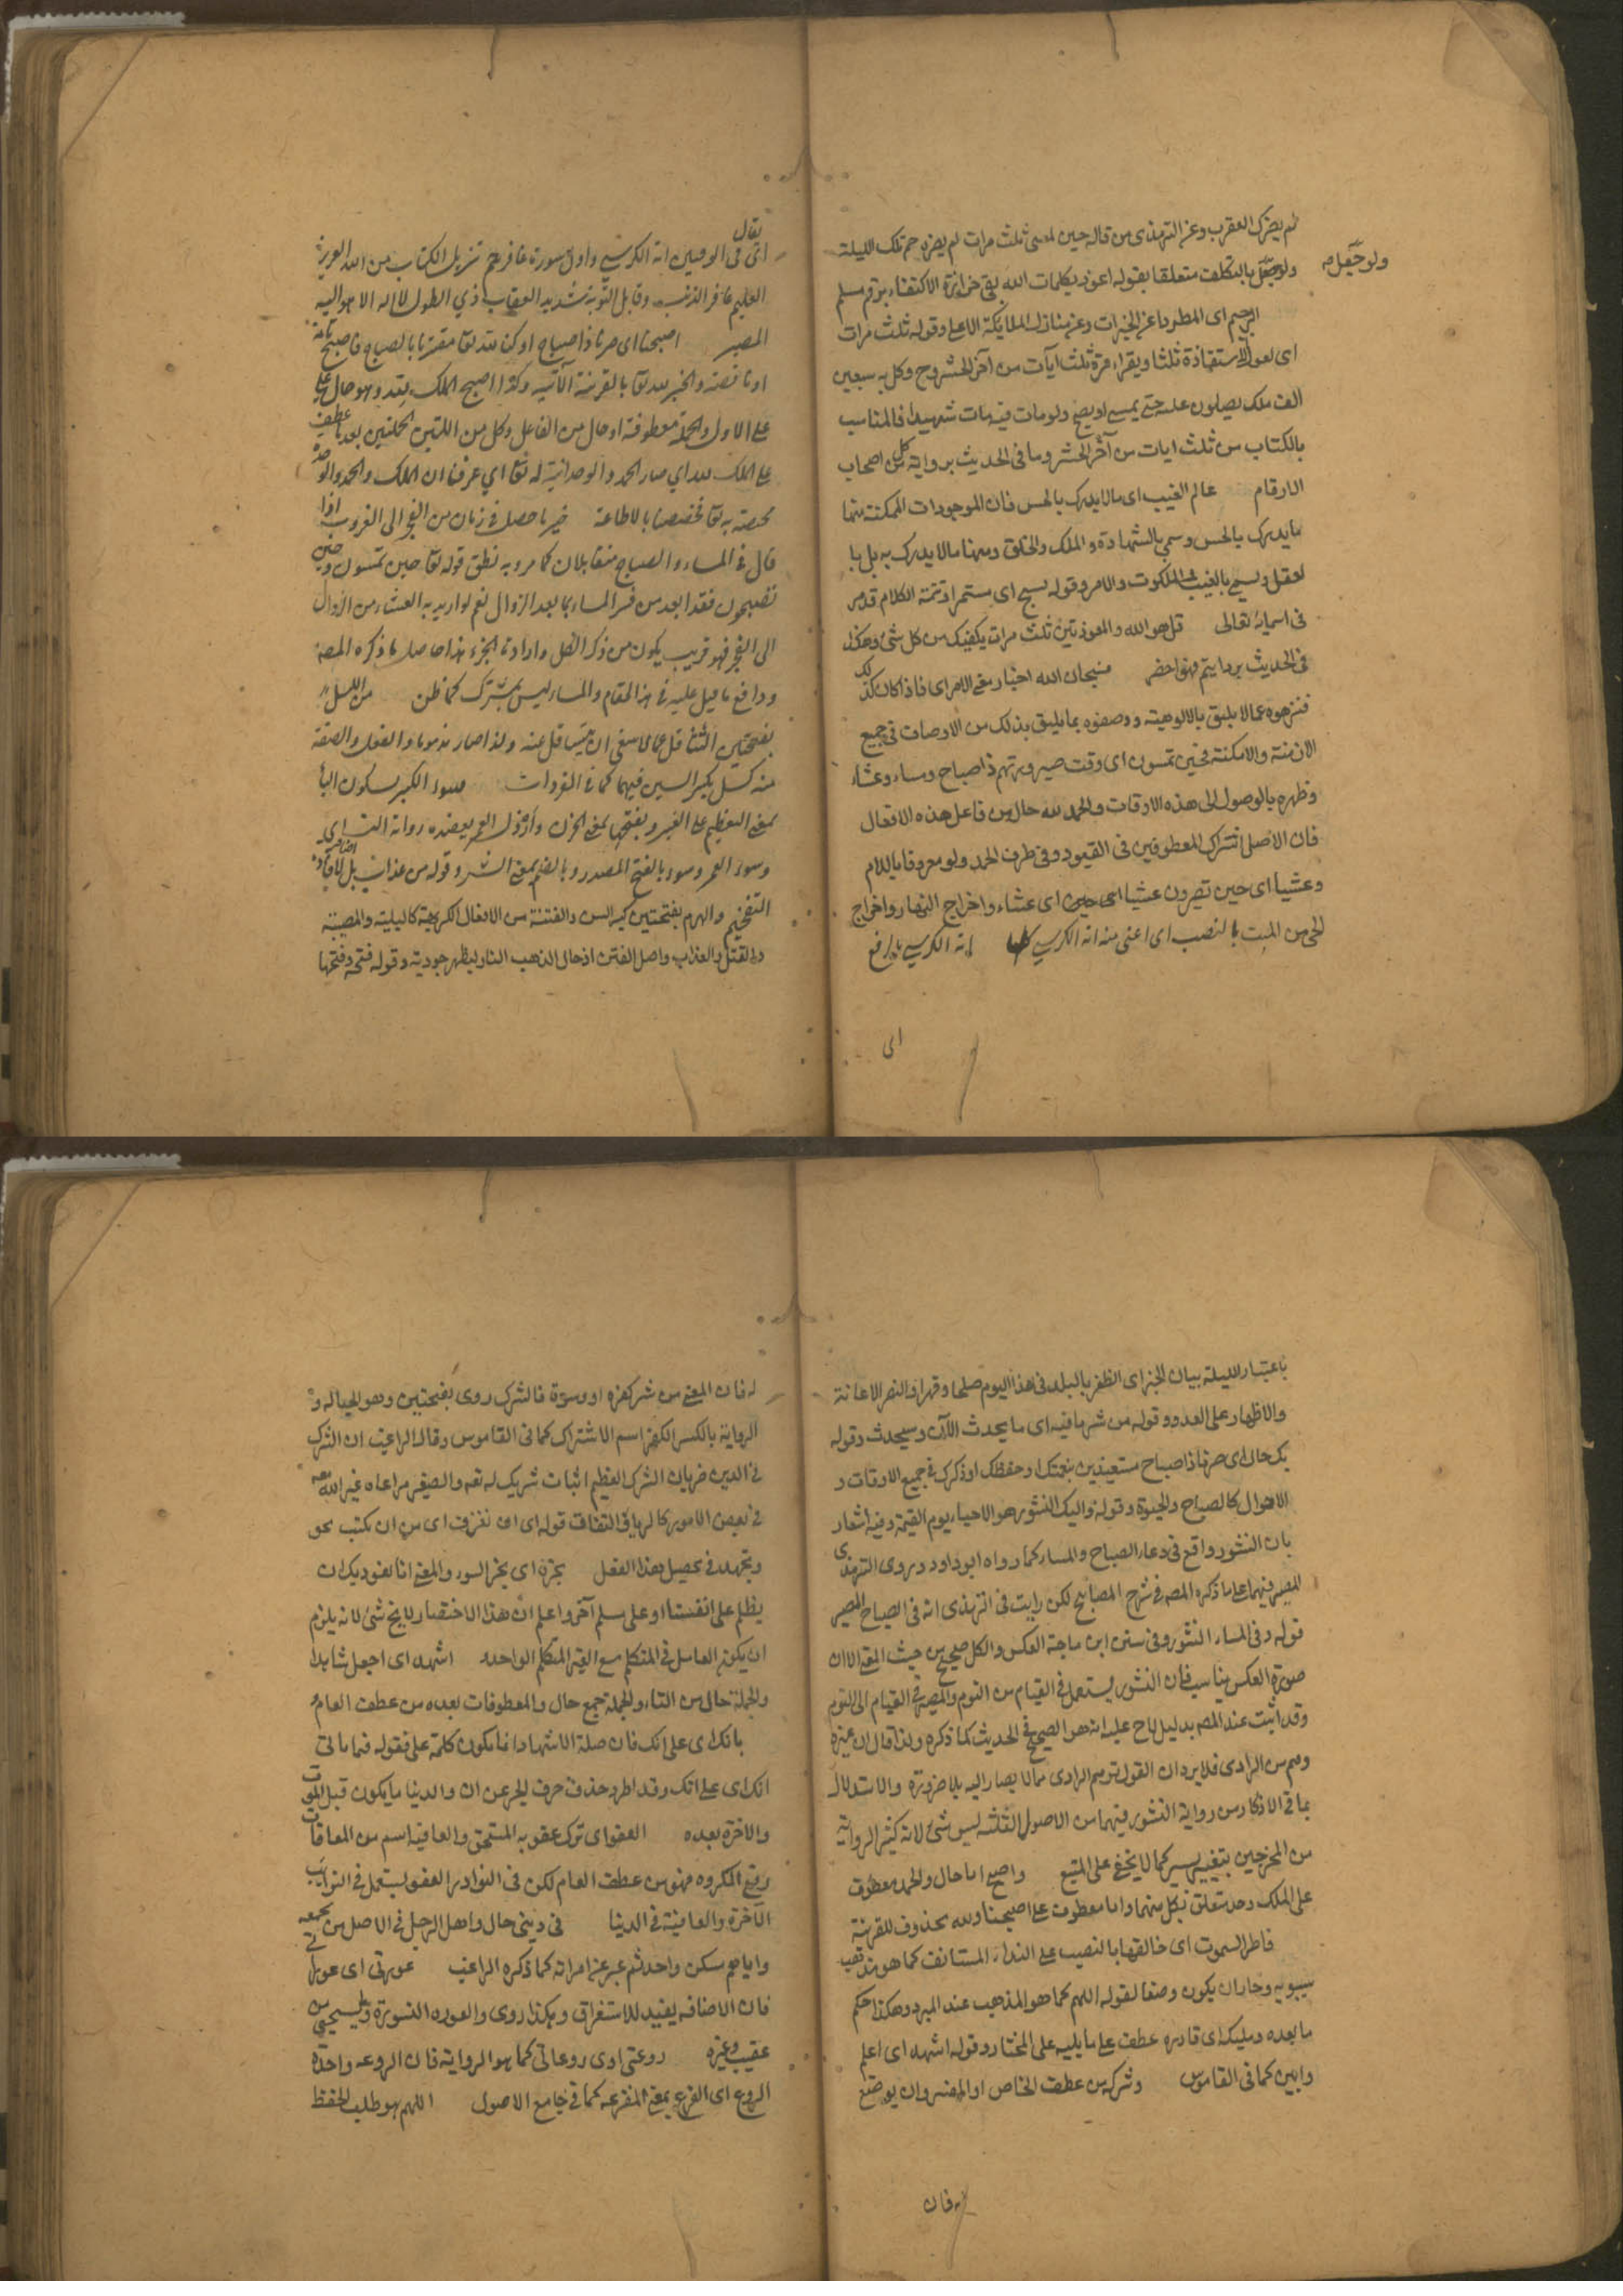 لم يضرك العقرب وعن الترمذى من قاله حين يمسى ثلث مرات لم يضره حمة تلك الليلة
ولو جعل
ولو جعل بالتكلف متعلقا بقوله اعوذ بكلمات الله بقى حزازة الاكتفاء برقم مسلم
الرجيم اى المطرود عن الخيرات وعن منازل الملايكة الاعلى وقوله ثلث مرات
اى يعوذ الاستعاذة ثلثا ويقراء مرة ثلث آيات من آخر الحشر وح وكل به سبعين
الف ملك يصلون عليه حتى يمسى او يصبح ولو مات فيه مات شهيدا فالمناسب
بالكتاب من ثلث ايات من آخر الحشر وما فى الحديث برواية كل من اصحاب
الارقام عالم الغيب اى ما لا يدرك بالحس فان الموجودات الممكنة منها
ما يدرك بالحس وسمى بالشهادة والملك والخلق ومنها ما لا يدرك به بل با
لعقل ويسمى بالغيب والملكوت والامر وقوله يسبح اى مستمرا وتتمة الكلام قد مر
فى اسمائه تعالى قل هو الله والمعوذتين ثلث مرات يكفيك من كل شئ وهكذا
فى الحديث فسبحان الله اخبار بمعنى الامر اى فاذا كان كذلك
فنزهوه عما لا يليق بالالوهية ووصفوه بما يليق بذلك من الاوصاف فى جميع
الازمنة والامكنة فحين تمسون اى وقت صيرورتهم ذا صباح ومساء وعشاء
وظهره بالوصول الى هذه الاوقات والحمد لله حال من فاعل هذه الافعال
فان الاصل اشتراك المعطوفين فى القيود وفى طرف الحمد ولو معروفا باللام
وعشيا اى حين تصيرون عشيا اى عشاء واخراج النهار واخراج
الحى من الميت بالنصب اى اعنى منه اية الكرسى اية الكرسى بالرفع
اى
يقال
اى فى الوقتين اية الكرسى واول سورة غافر حم تنزيل الكتاب من الله العزيز
العليم غافر الذنب وقابل التوبة شديد العقاب ذي الطول لا اله الا هو اليه
المصير اصبحنا اى صرنا ذا صباح او كن لله تعا مقترنا بالصباح فاصبح تامة
او ناقصة والخبر لله تعا بالقرينة الآتية وكذا اصبح الملك لله وهو حال
على الاول والجملة معطوفة او حال من الفاعل وكل من اللتين الجملتين بعد يا عطف
على الملك لله اي صار الحمد والوحدانية له تعا اي عرفنا ان الملك والحمد والوحدة
مختصة به تعا تخصصنا بالاطاعة خير ما حصل فى زمان من الفجر الى الغروب اذا
قال فى المساء والصباح متقابلان كما مر وبه نطق قوله تعا حين تمسون وحين
تصبحون فقد ابعد من فسر المساء بما بعد الزوال نعم لو اريد به العشاء من الزوال
الى الفجر فهو قريب يكون من ذكر الكل وارادة الجزء هذا حاصل ما ذكره المصنف
ودافع ما قيل عليه فى هذا المقام والمساء ليس بمشترك كما ظن من الكسل
بفتحتين التثاقل عما لا ينبغى ان يتثاقل عنه ولذا صار مذموما والفعل والصفة
منه كسل بكسر السين فيهما كما فى المفردات وسوء الكبر بسكون البأ
بمعنى التعظيم على الغير وبفتحها بمعنى الخرف وأرذل العمر يعضده رواية النسـاى
وسوء العمر وسوء بالفتح المصدر وبالضم بمعنى الشر وقوله من عذاب بل لافادة
التفخيم والهرم بفتحتين كبر السن والفتنة من الافعال الكريهة كالبلية والمصيبة
والقتل والعذاب واصل الفتن ادخال الذهب النار ليظهر جودته وقوله فتحه وفتحها
باعتبار الليلة بيان الخبر اى الظفر بالبلد فى هذا اليوم صلحا وقهرا والنصر الاعانة
والاظهار على العدو وقوله من شر ما فيه اى ما يحدث الآن وسيحدث وقوله
بك حال اى صرنا ذا صباح مستعينين بنعمتك او حفظك او ذكرك فى جميع الاوقات و
الاحوال كالصباح والحيوة وقوله واليك النشور هو الاحياء يوم القيمة وفيه اشعار
بان النشور واقع فى دعاء الصباح والمساء كما رواه ابو داود وروى الترمذى
المصير فيهما على ما ذكره المصـ فى شرح المصابيح لكن رايت فى الترمذى انه فى الصباح المصير
قوله وفى المساء النشور وفى سنن ابن ماجة العكس والكل صحيح من حيث المعنى الا ان
صورة العكس يناسب فان النشور يستعمل فى القيام من النوم والمصير فى القيام الى النوم
وقد اثبت عند المصـ بدليل لاح عليه انه هو الصحيح فى الحديث كما ذكره ولذا قال ان غيره
وهم من الراوى فلا يرد ان القول بوهم الراوى مما لا يصار اليه بلا ضرورة والاستدلال
بما فى الاذكار من رواية النشور فيهما من الاصول الثلثة ليس بشئ لانه كثير الرواية
من المخرجين بتغيير يسير كما لا يخفى على المتتبع واصبح اما حال والحمد معطوف
على الملك وحده متعلق بكل منهما واما معطوف على اصبحنا ولله محذوف للقرينة
فاطر السموت اى خالقها بالنصب على النداء المستانف كما هو مذهب
سيبويه وجاز ان يكون وصفا لقوله اللهم كما هو المذهب عند المبرد وهكذا حكم
ما بعده ومليكه اى قادره عطف على ما يليه على المختار وقوله اشهد اى اعلم
وابين كما فى القاموس وشركه من عطف الخاص او المفسر وان يوضع
له فان
له فان المعنى من شر كفره او وسوسة فالشرك روى بفتحتين وهو الحبالة و
الرواية بالكسر الكفر اسم الاشتراك كما فى القاموس وقال الراغب ان الشرك
فى الدين ضربان الشرك العظيم اثبات شريك له تعه والصغير مراعاة غير الله معه
فى بعض الامور كالرياء والنفاق قوله اى ان نقترف اى من ان نكتسب
ونجتهد فى تحصيل هذا الفعل يجره اى يجر السوء والمعنى انا نعوذ بك ان
يظلم على انفسنا او على مسلم آخر واعلم ان هذا الاختصار لا يخ شئ لانه يلزم
ان يكون العامل فى المتكلم مع الغير المتكلم الواحد اشهد اى اجعل شاهدا
والجملة حال من التاء والجملة جمع حال والمعطوفات بعده من عطف العام
بانك اى على انك فان صلة الاشهاد انما يكون كلمة على فقوله فيما ياتى
انك اى على انك وقد اطرد حذف حرف الجر عن ان والدنيا ما يكون قبل الموت
والاخرة بعده العفو اى ترك عقوبة المستحق والعافية اسم من المعافات
ودفع المكروه فهو من عطف العام لكن فى النوادر العفو يستعمل فى النوائب
الآخرة والعافية فى الدنيا فى دينى حال واهل الرجل فى الاصل من يجمعه
واياهم مسكن واحد ثم عبر عن امراته كما ذكره الراغب عورتى اى عوراتى
فان الاضافة يفيد للاستغراق وهكذا روى والعورة السوءة وما يستحيى من
عقيب وغيره روعتى اى روعاتى كما هو الرواية فان الروعة واحدة
الروع اى الفزع بمعنى المفزعة كما فى جامع الاصول اللهم هو طلب الحفظ